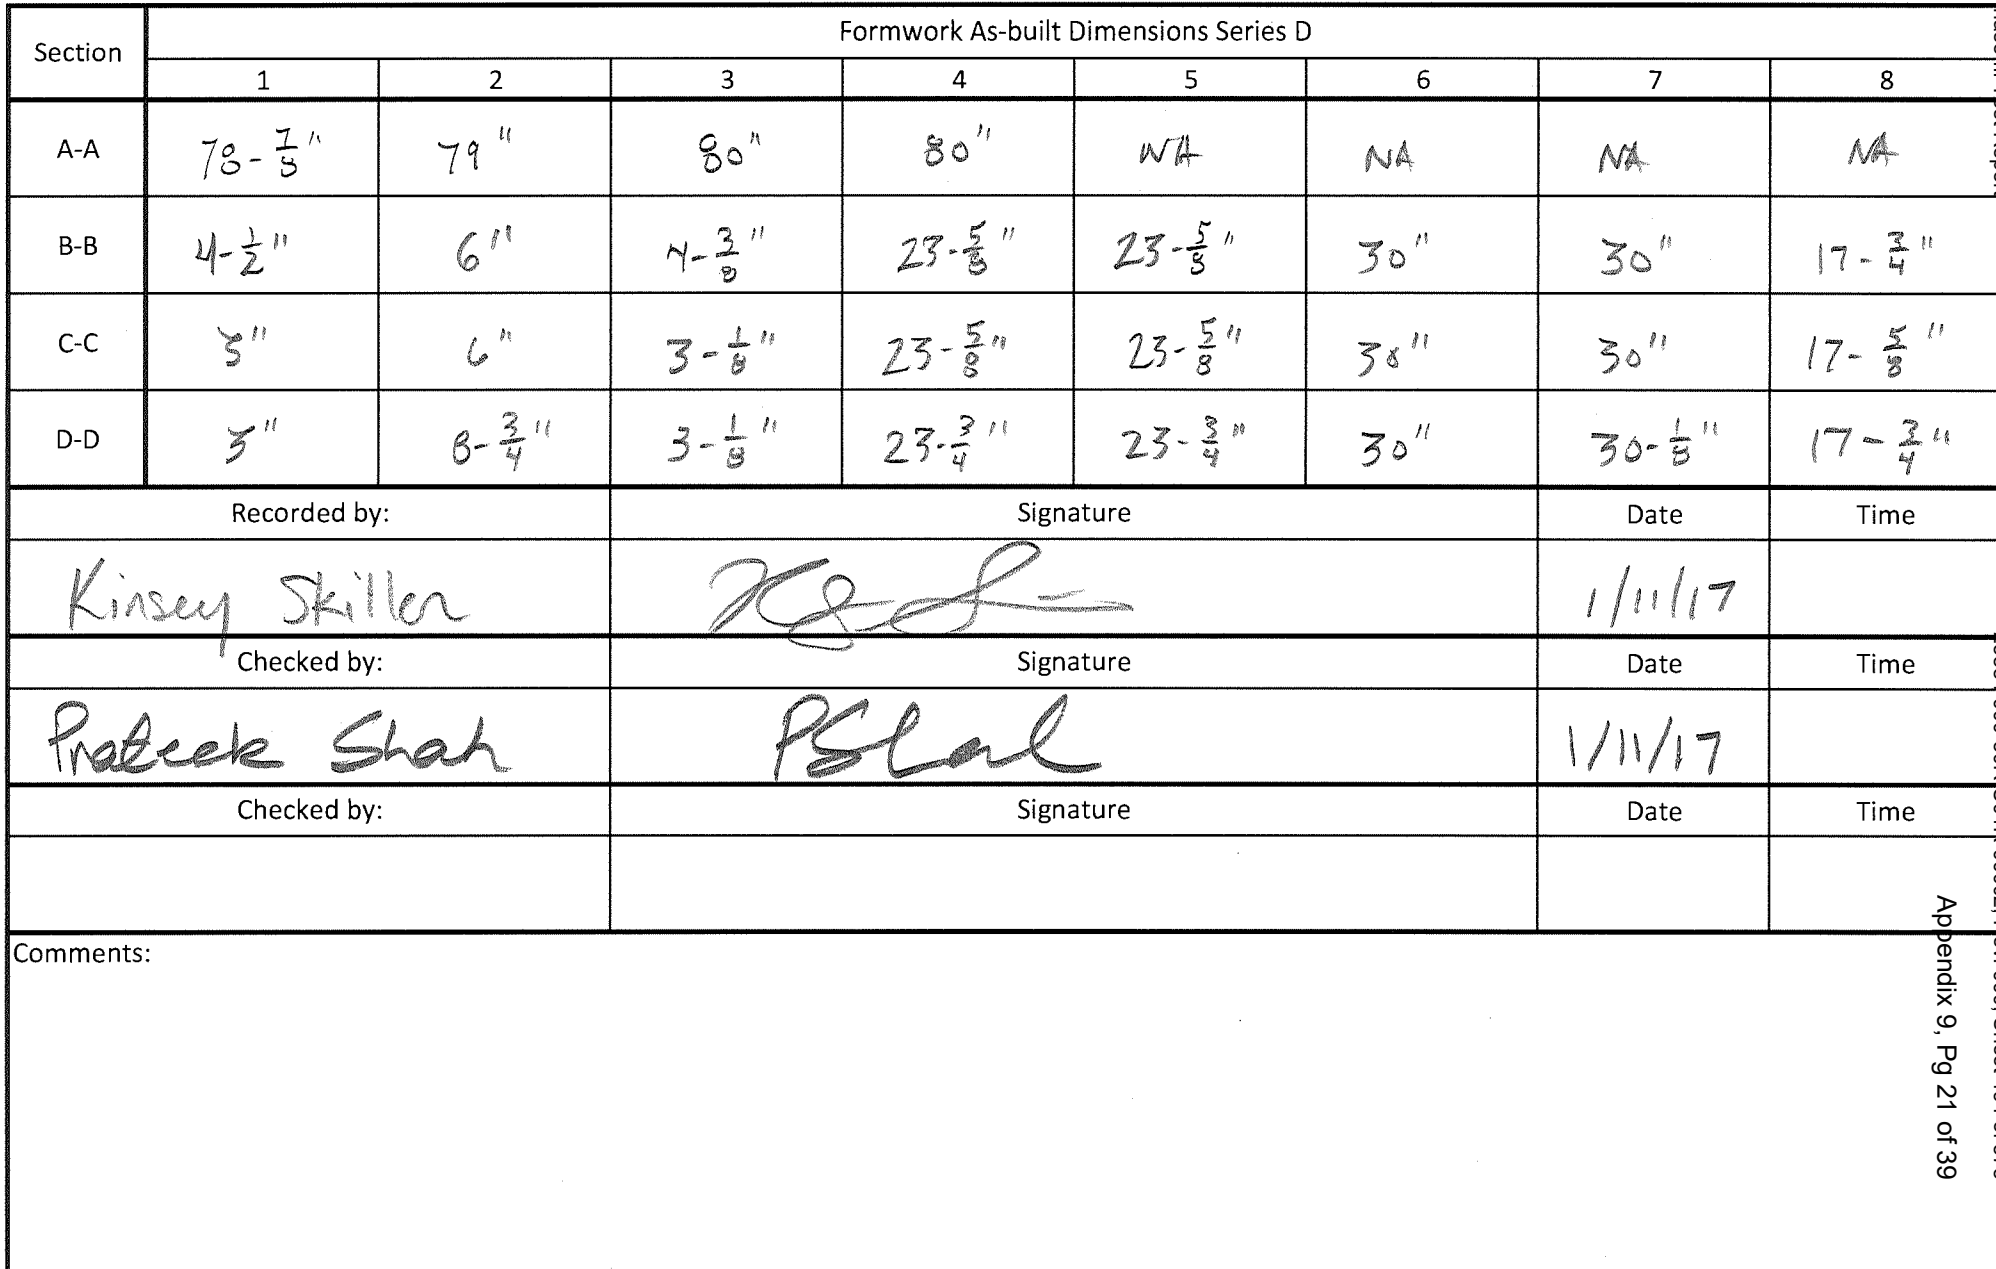 Formwork As-built Dimensions Series D
Section 1 2 3 4 5 6 7 8
A-A 78-7/8" 79" 80" 80" NA NA NA NA
B-B 4-1/2" 6" 4-3/8" 23-5/8" 23-5/8" 30" 30" 17-3/4"
C-C 3" 6" 3-1/8" 23-5/8" 23-5/8" 30" 30" 17-5/8"
D-D 3" 8-3/4" 3-1/8" 23-3/4" 23-3/4" 30" 30-1/8" 17-3/4"
Recorded by: Signature Date Time
Kinsey Skillen 1/11/17
Checked by: Signature Date Time
Prateek Shah PShah 1/11/17
Checked by: Signature Date Time
Comments:
Appendix 9, Pg 21 of 39